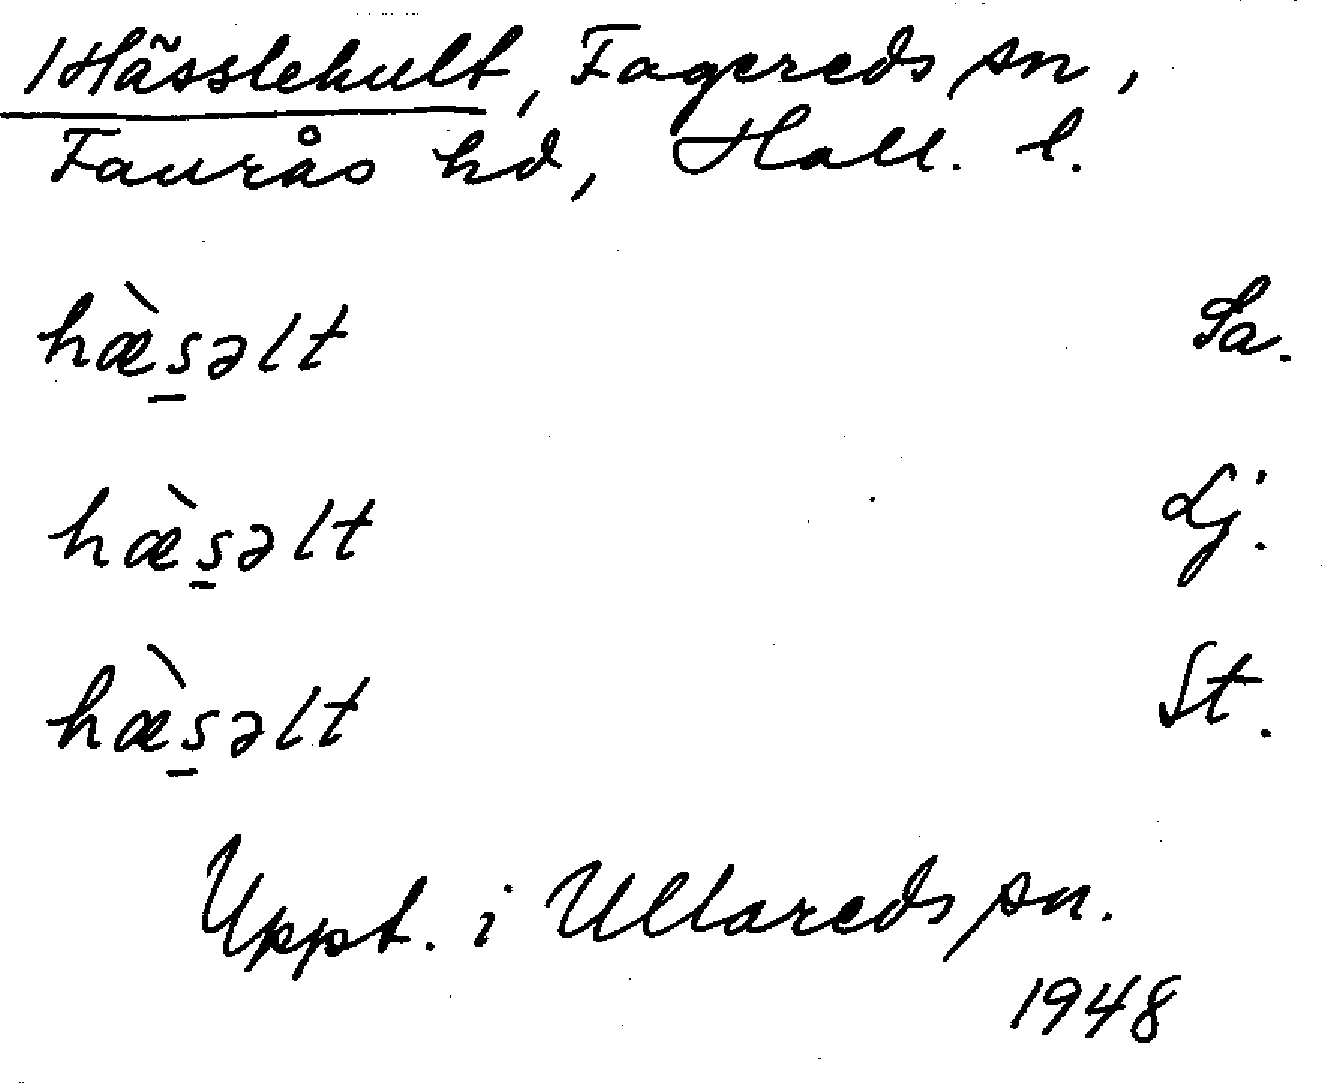 Hässlehult, Fagereds sn,
Faurås hd, Hall. l.
hæ̀s̠əlt Sa.
hæ̀s̠əlt Lj.
hæ̀s̠əlt St.
Uppt. i Ullareds sn.
1948